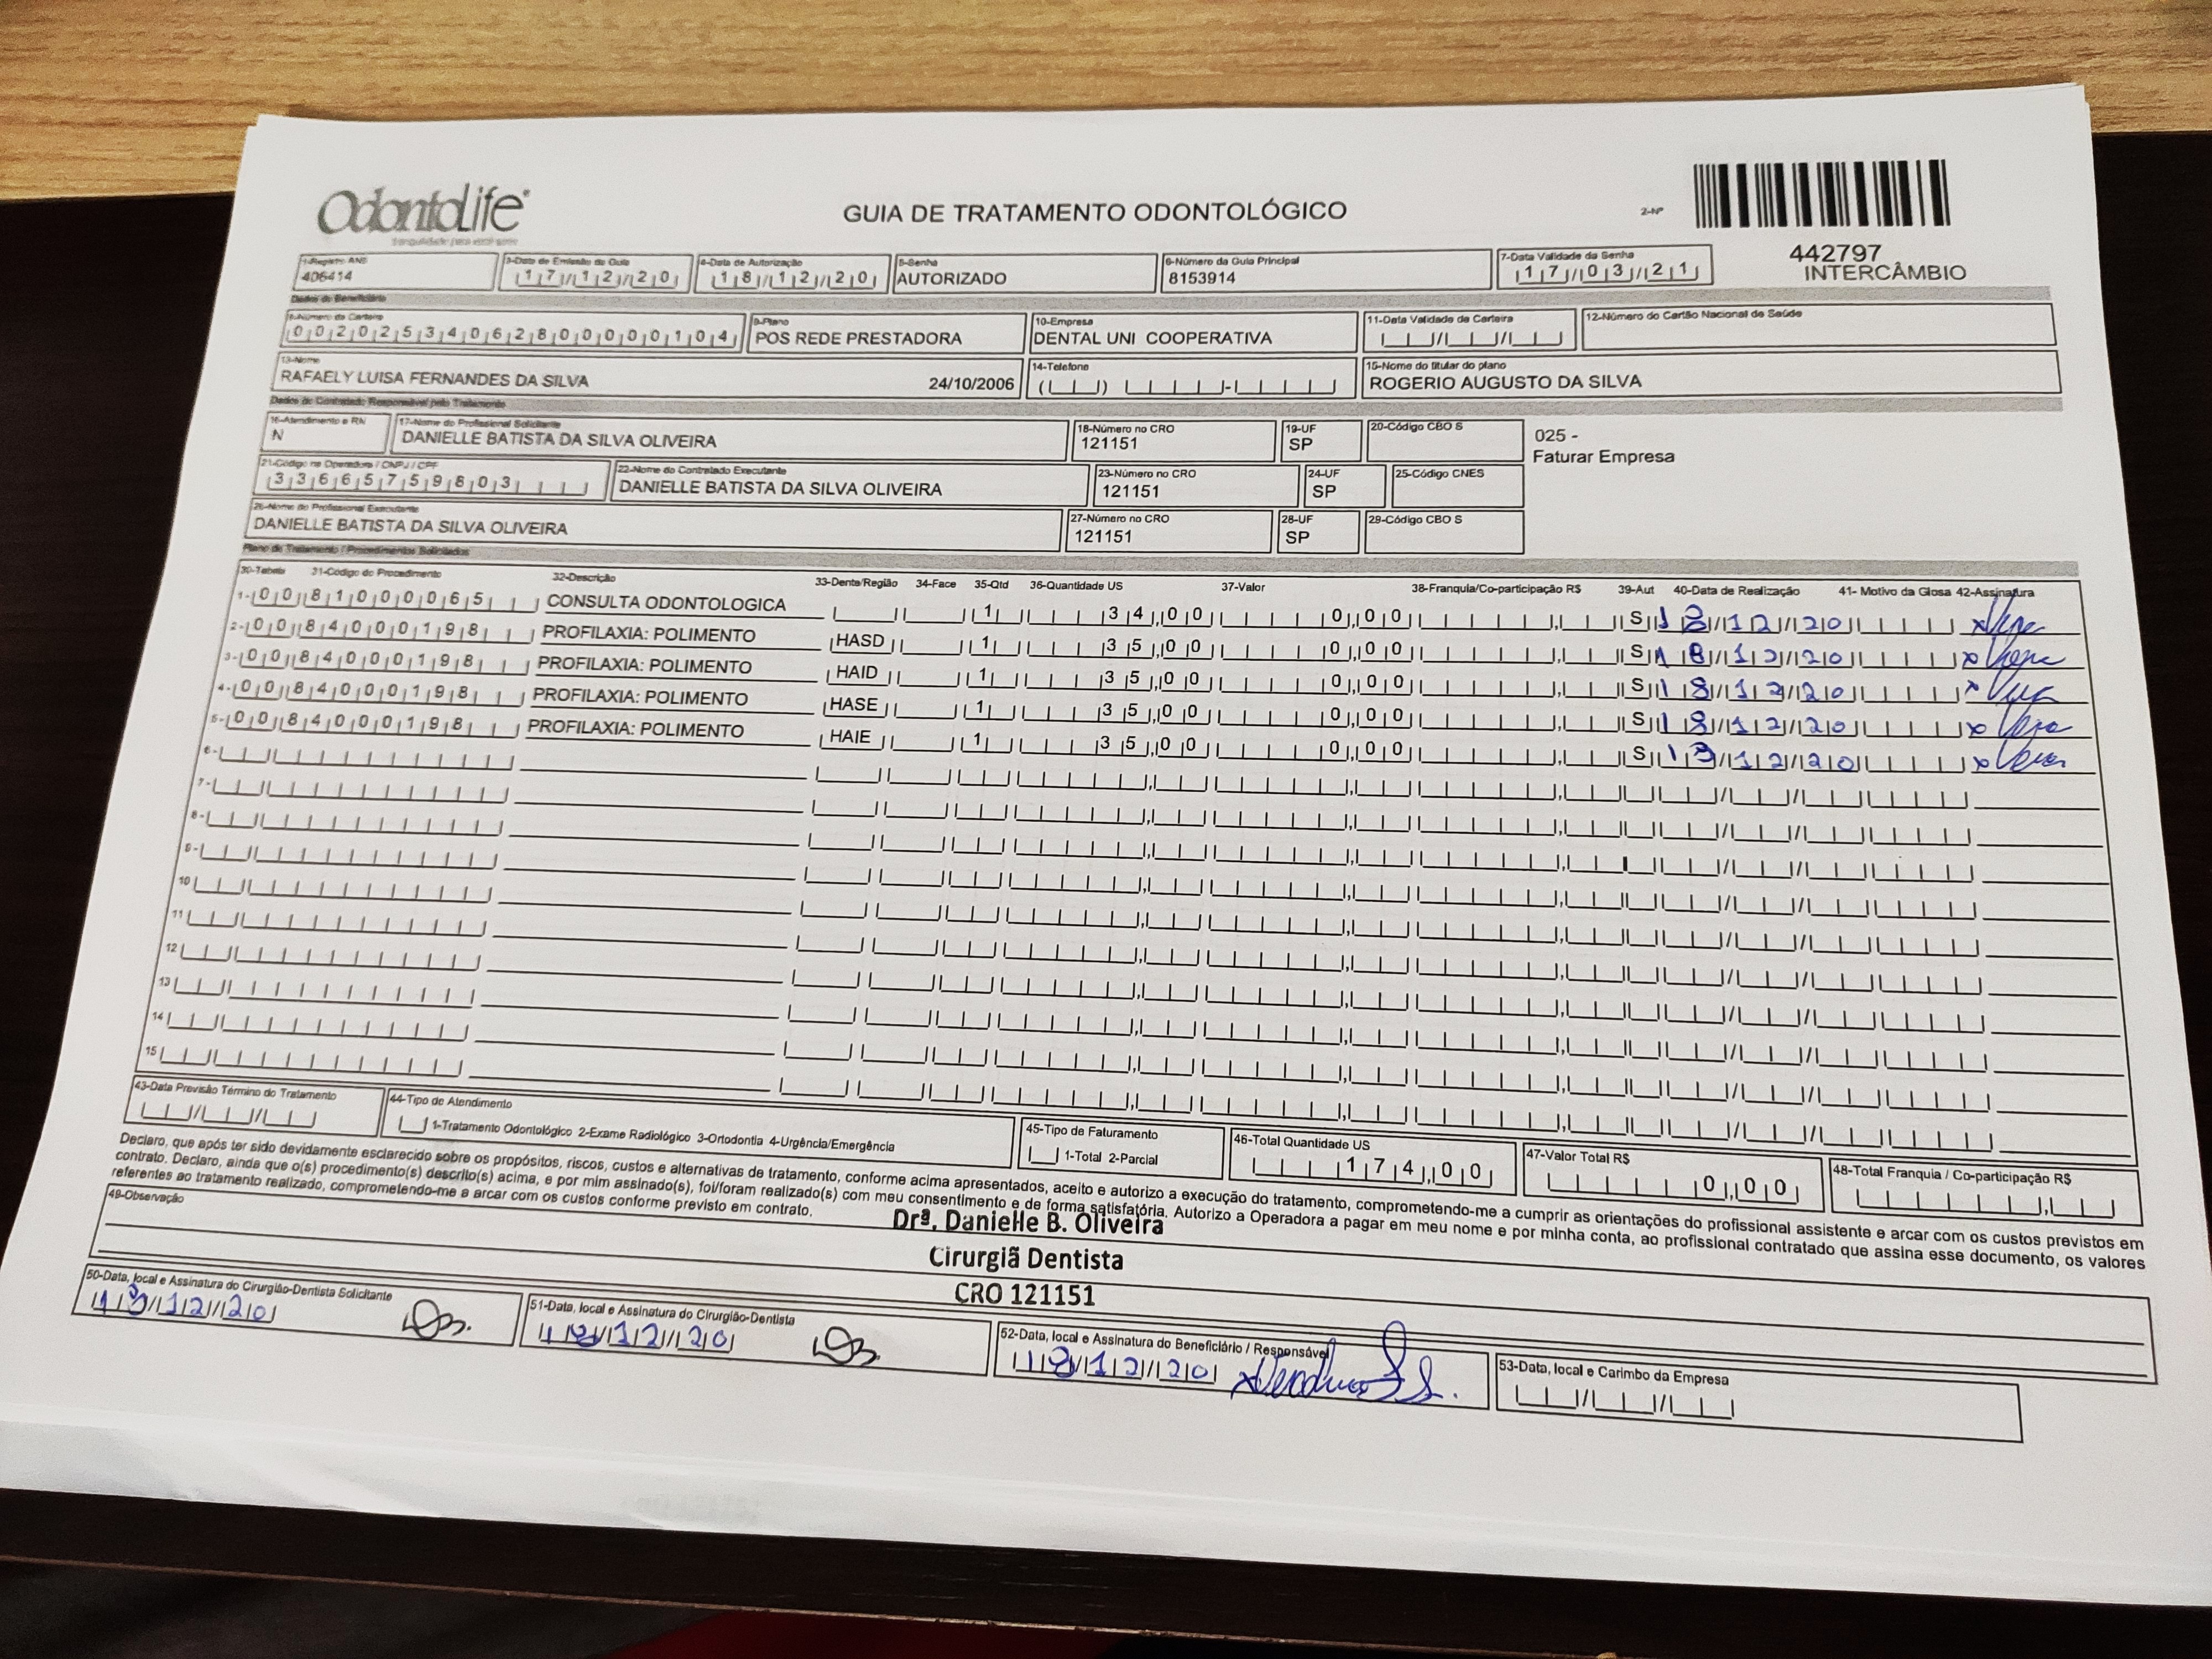 OdontoLife®
tranquilidade para você sorrir
GUIA DE TRATAMENTO ODONTOLÓGICO
2-Nº
442797
INTERCÂMBIO
1-Registro ANS
406414
3-Data de Emissão da Guia
17/12/20
4-Data de Autorização
18/12/20
5-Senha
AUTORIZADO
6-Número da Guia Principal
8153914
7-Data Validade da Senha
17/03/21
Dados do Beneficiário
8-Número da Carteira
00202534062800000104
9-Plano
POS REDE PRESTADORA
10-Empresa
DENTAL UNI COOPERATIVA
11-Data Validade da Carteira
12-Número do Cartão Nacional de Saúde
13-Nome
RAFAELY LUISA FERNANDES DA SILVA 24/10/2006
14-Telefone
15-Nome do titular do plano
ROGERIO AUGUSTO DA SILVA
Dados do Contratado Responsável pelo Tratamento
16-Atendimento a RN
N
17-Nome do Profissional Solicitante
DANIELLE BATISTA DA SILVA OLIVEIRA
18-Número no CRO
121151
19-UF
SP
20-Código CBO S
025 -
Faturar Empresa
21-Código na Operadora / CNPJ / CPF
33665759803
22-Nome do Contratado Executante
DANIELLE BATISTA DA SILVA OLIVEIRA
23-Número no CRO
121151
24-UF
SP
25-Código CNES
26-Nome do Profissional Executante
DANIELLE BATISTA DA SILVA OLIVEIRA
27-Número no CRO
121151
28-UF
SP
29-Código CBO S
Plano de Tratamento / Procedimentos Solicitados
30-Tabela 31-Código do Procedimento 32-Descrição 33-Dente/Região 34-Face 35-Qtd 36-Quantidade US 37-Valor 38-Franquia/Co-participação R$ 39-Aut 40-Data de Realização 41- Motivo da Glosa 42-Assinatura
1- 00 81000065 CONSULTA ODONTOLOGICA 1 34,00 0,00 S 18/12/20
2- 00 84000198 PROFILAXIA: POLIMENTO HASD 1 35,00 0,00 S 18/12/20
3- 00 84000198 PROFILAXIA: POLIMENTO HAID 1 35,00 0,00 S 18/12/20
4- 00 84000198 PROFILAXIA: POLIMENTO HASE 1 35,00 0,00 S 18/12/20
5- 00 84000198 PROFILAXIA: POLIMENTO HAIE 1 35,00 0,00 S 18/12/20
6-
7-
8-
9-
10
11
12
13
14
15
43-Data Previsão Término do Tratamento
44-Tipo de Atendimento
1-Tratamento Odontológico 2-Exame Radiológico 3-Ortodontia 4-Urgência/Emergência
45-Tipo de Faturamento
1-Total 2-Parcial
46-Total Quantidade US
174,00
47-Valor Total R$
0,00
48-Total Franquia / Co-participação R$
Declaro, que após ter sido devidamente esclarecido sobre os propósitos, riscos, custos e alternativas de tratamento, conforme acima apresentados, aceito e autorizo a execução do tratamento, comprometendo-me a cumprir as orientações do profissional assistente e arcar com os custos previstos em
contrato. Declaro, ainda que o(s) procedimento(s) descrito(s) acima, e por mim assinado(s), foi/foram realizado(s) com meu consentimento e de forma satisfatória. Autorizo a Operadora a pagar em meu nome e por minha conta, ao profissional contratado que assina esse documento, os valores
referentes ao tratamento realizado, comprometendo-me a arcar com os custos conforme previsto em contrato.
49-Observação
Drª. Danielle B. Oliveira
Cirurgiã Dentista
CRO 121151
50-Data, local e Assinatura do Cirurgião-Dentista Solicitante
18/12/20
51-Data, local e Assinatura do Cirurgião-Dentista
18/12/20
52-Data, local e Assinatura do Beneficiário / Responsável
18/12/20
53-Data, local e Carimbo da Empresa